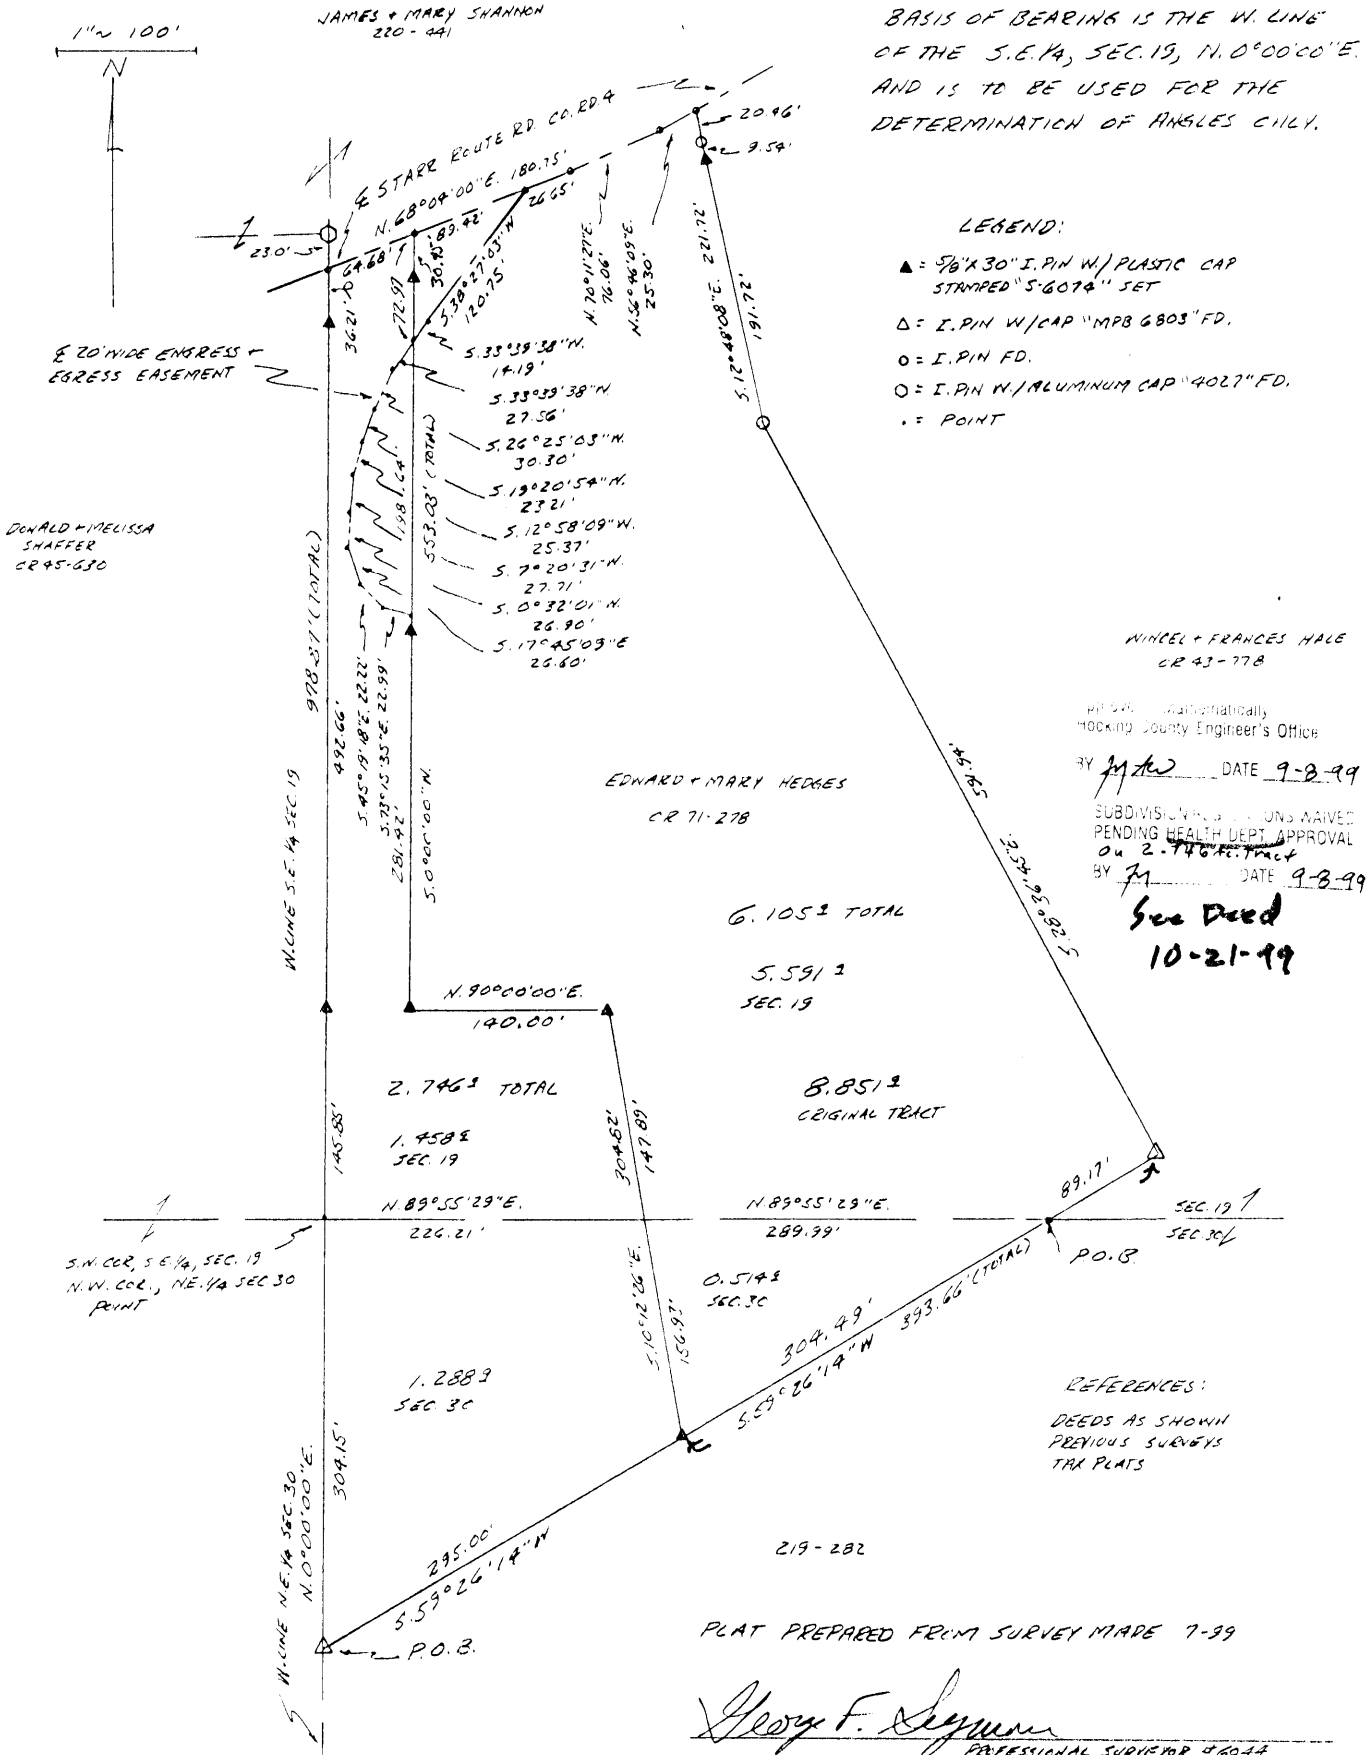 JAMES + MARY SHANNON
220-441
1" ~ 100'
N
BASIS OF BEARING IS THE W. LINE
OF THE S.E.1/4, SEC.19, N.0°00'00"E.
AND IS TO BE USED FOR THE
DETERMINATION OF ANGLES ONLY.
LEGEND:
▲ = 5/8"X30" I.PIN W./PLASTIC CAP
STAMPED "S-6074" SET
△ = I.PIN W/CAP "MPB 6803" FD.
o = I.PIN FD.
O = I.PIN W./ALUMINUM CAP "4027" FD.
. = POINT
℄ STARR ROUTE RD. CO.RD.4
N.68°04'00"E. 180.75'
64.68'
89.42'
26.65'
23.0'
20.46'
9.54'
N.70°11'27"E.
76.06'
N.56°46'09"E.
25.30'
36.21'
72.97'
30.95'
S.38°27'03"W
120.75'
S.12°48'08"E. 221.22'
191.22'
℄ 20' WIDE ENGRESS +
EGRESS EASEMENT
S.33°39'38"W.
14.19'
S.33°39'38"W.
27.56'
S.26°25'03"W.
30.30'
S.19°20'54"W.
23.21'
S.12°58'09"W.
25.37'
S.7°20'31"W.
27.71'
S.0°32'01"W.
26.90'
S.17°45'09"E
26.60'
S.45°19'18"E. 22.22'
S.73°15'35"E. 22.99'
198.64'
553.03' (TOTAL)
DONALD + MELISSA
SHAFFER
CR 45-630
978.87' (TOTAL)
492.66'
W.LINE S.E.1/4 SEC.19
281.42'
S.0°00'00"W.
WINCEL + FRANCES HALE
CR 43-778
Mathematically
Hocking County Engineer's Office
BY DATE 9-8-99
SUBDIVISION WAIVED
PENDING HEALTH DEPT. APPROVAL
on 2.746 Ac. Tract
BY DATE 9-8-99
See Deed
10-21-99
EDWARD + MARY HEDGES
CR 71-278
591.94'
S.28°36'45"E.
6.105± TOTAL
5.591±
SEC. 19
N.90°00'00"E.
140.00'
2.746± TOTAL
8.851±
ORIGINAL TRACT
1.458±
SEC. 19
145.85'
304.82'
147.89'
89.17'
N.89°55'29"E.
226.21'
N.89°55'29"E.
289.99'
SEC.19
SEC.30
P.O.B.
S.W. COR, S.E.1/4, SEC. 19
N.W. COR., NE.1/4 SEC 30
POINT
S.10°12'06"E.
156.93'
0.514±
SEC.30
304.49'
393.66' (TOTAL)
S.59°26'14"W
1.288±
SEC. 30
REFERENCES:
DEEDS AS SHOWN
PREVIOUS SURVEYS
TAX PLATS
W.LINE N.E.1/4 SEC.30
N.0°00'00"E.
304.15'
295.00'
S.59°26'14"W
219-282
P.O.B.
PLAT PREPARED FROM SURVEY MADE 7-99
George F. Seymour
PROFESSIONAL SURVEYOR #6044